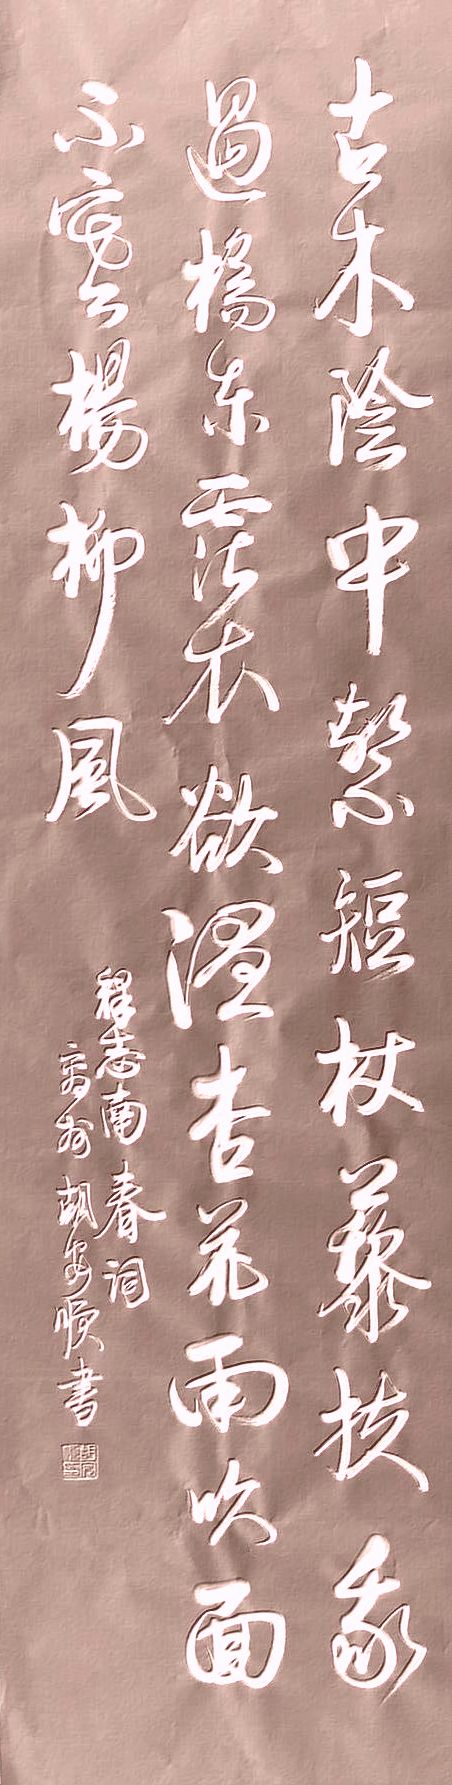 古木陰中繫短杖藜扶我
過橋東霑衣欲濕杏花雨吹面
不寒楊柳風
釋志南春詞
商州胡安順書